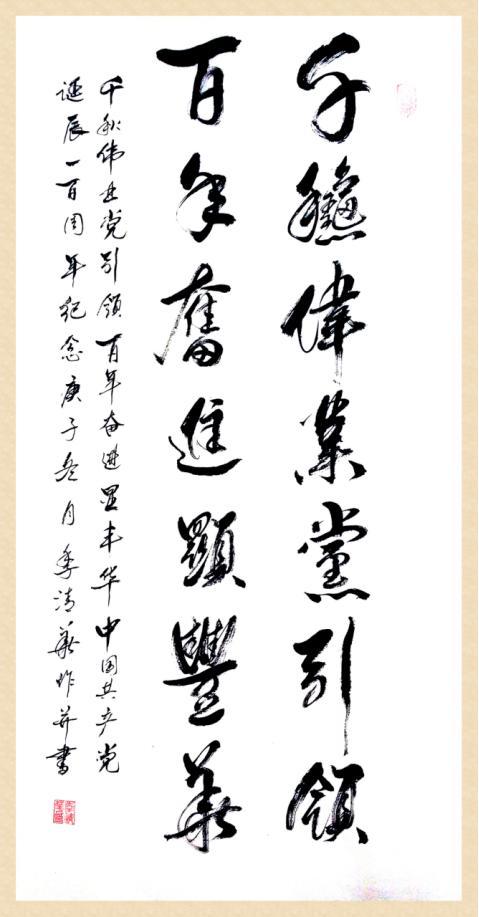 千龝偉業黨引領
百年奮進顯豐華
千秋伟业党引领百年奋进显丰华中国共产党
诞辰一百周年纪念庚子冬月季清華作并書